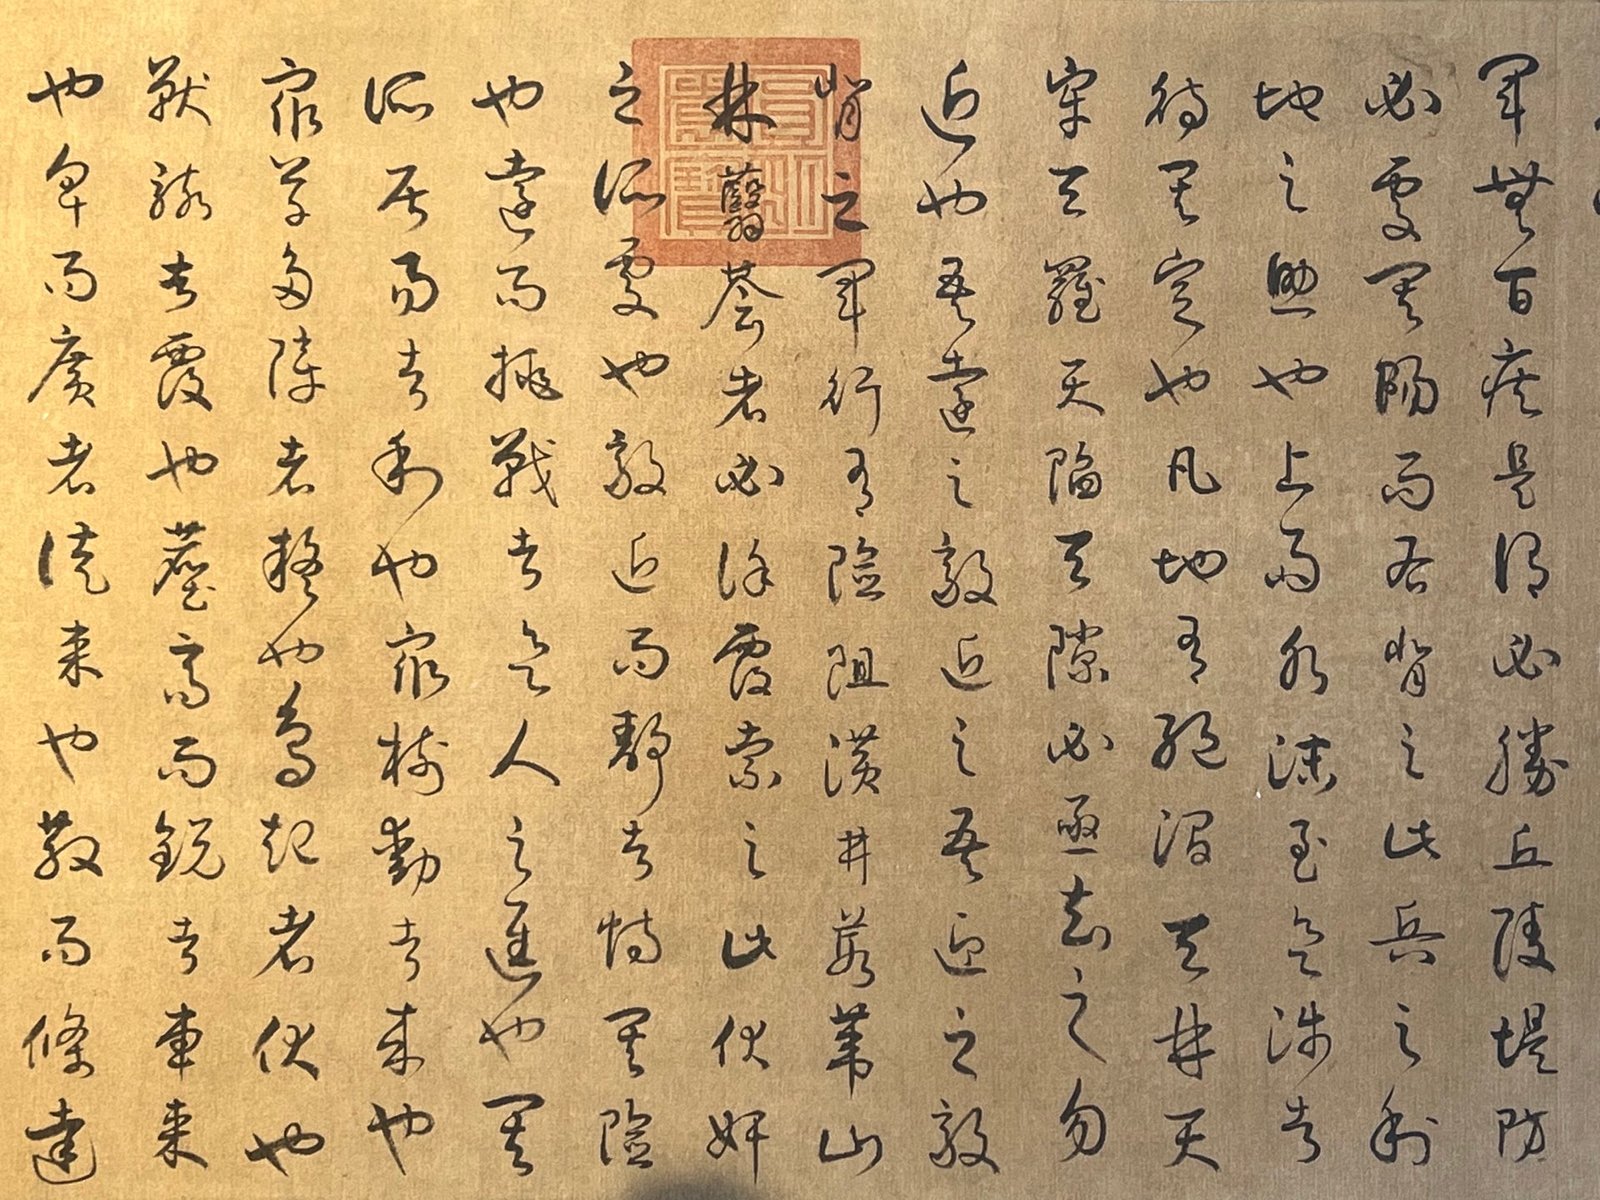 軍無百疾是謂必勝丘陵堤防
必處其陽而右背之此兵之利
地之助也上雨水沫至欲涉者
待其定也凡地有絕澗天井天
牢天羅天陷天隙必亟去之勿
近也吾遠之敵近之吾迎之敵
背之軍行有險阻潢井葭葦山
林蘙薈者必謹覆索之此伏奸
之所處也敵近而靜者恃其險
也遠而挑戰者欲人之進也其
所居易者利也眾樹動者來也
眾草多障者疑也鳥起者伏也
獸駭者覆也塵高而銳者車來
也卑而廣者徒來也散而條達